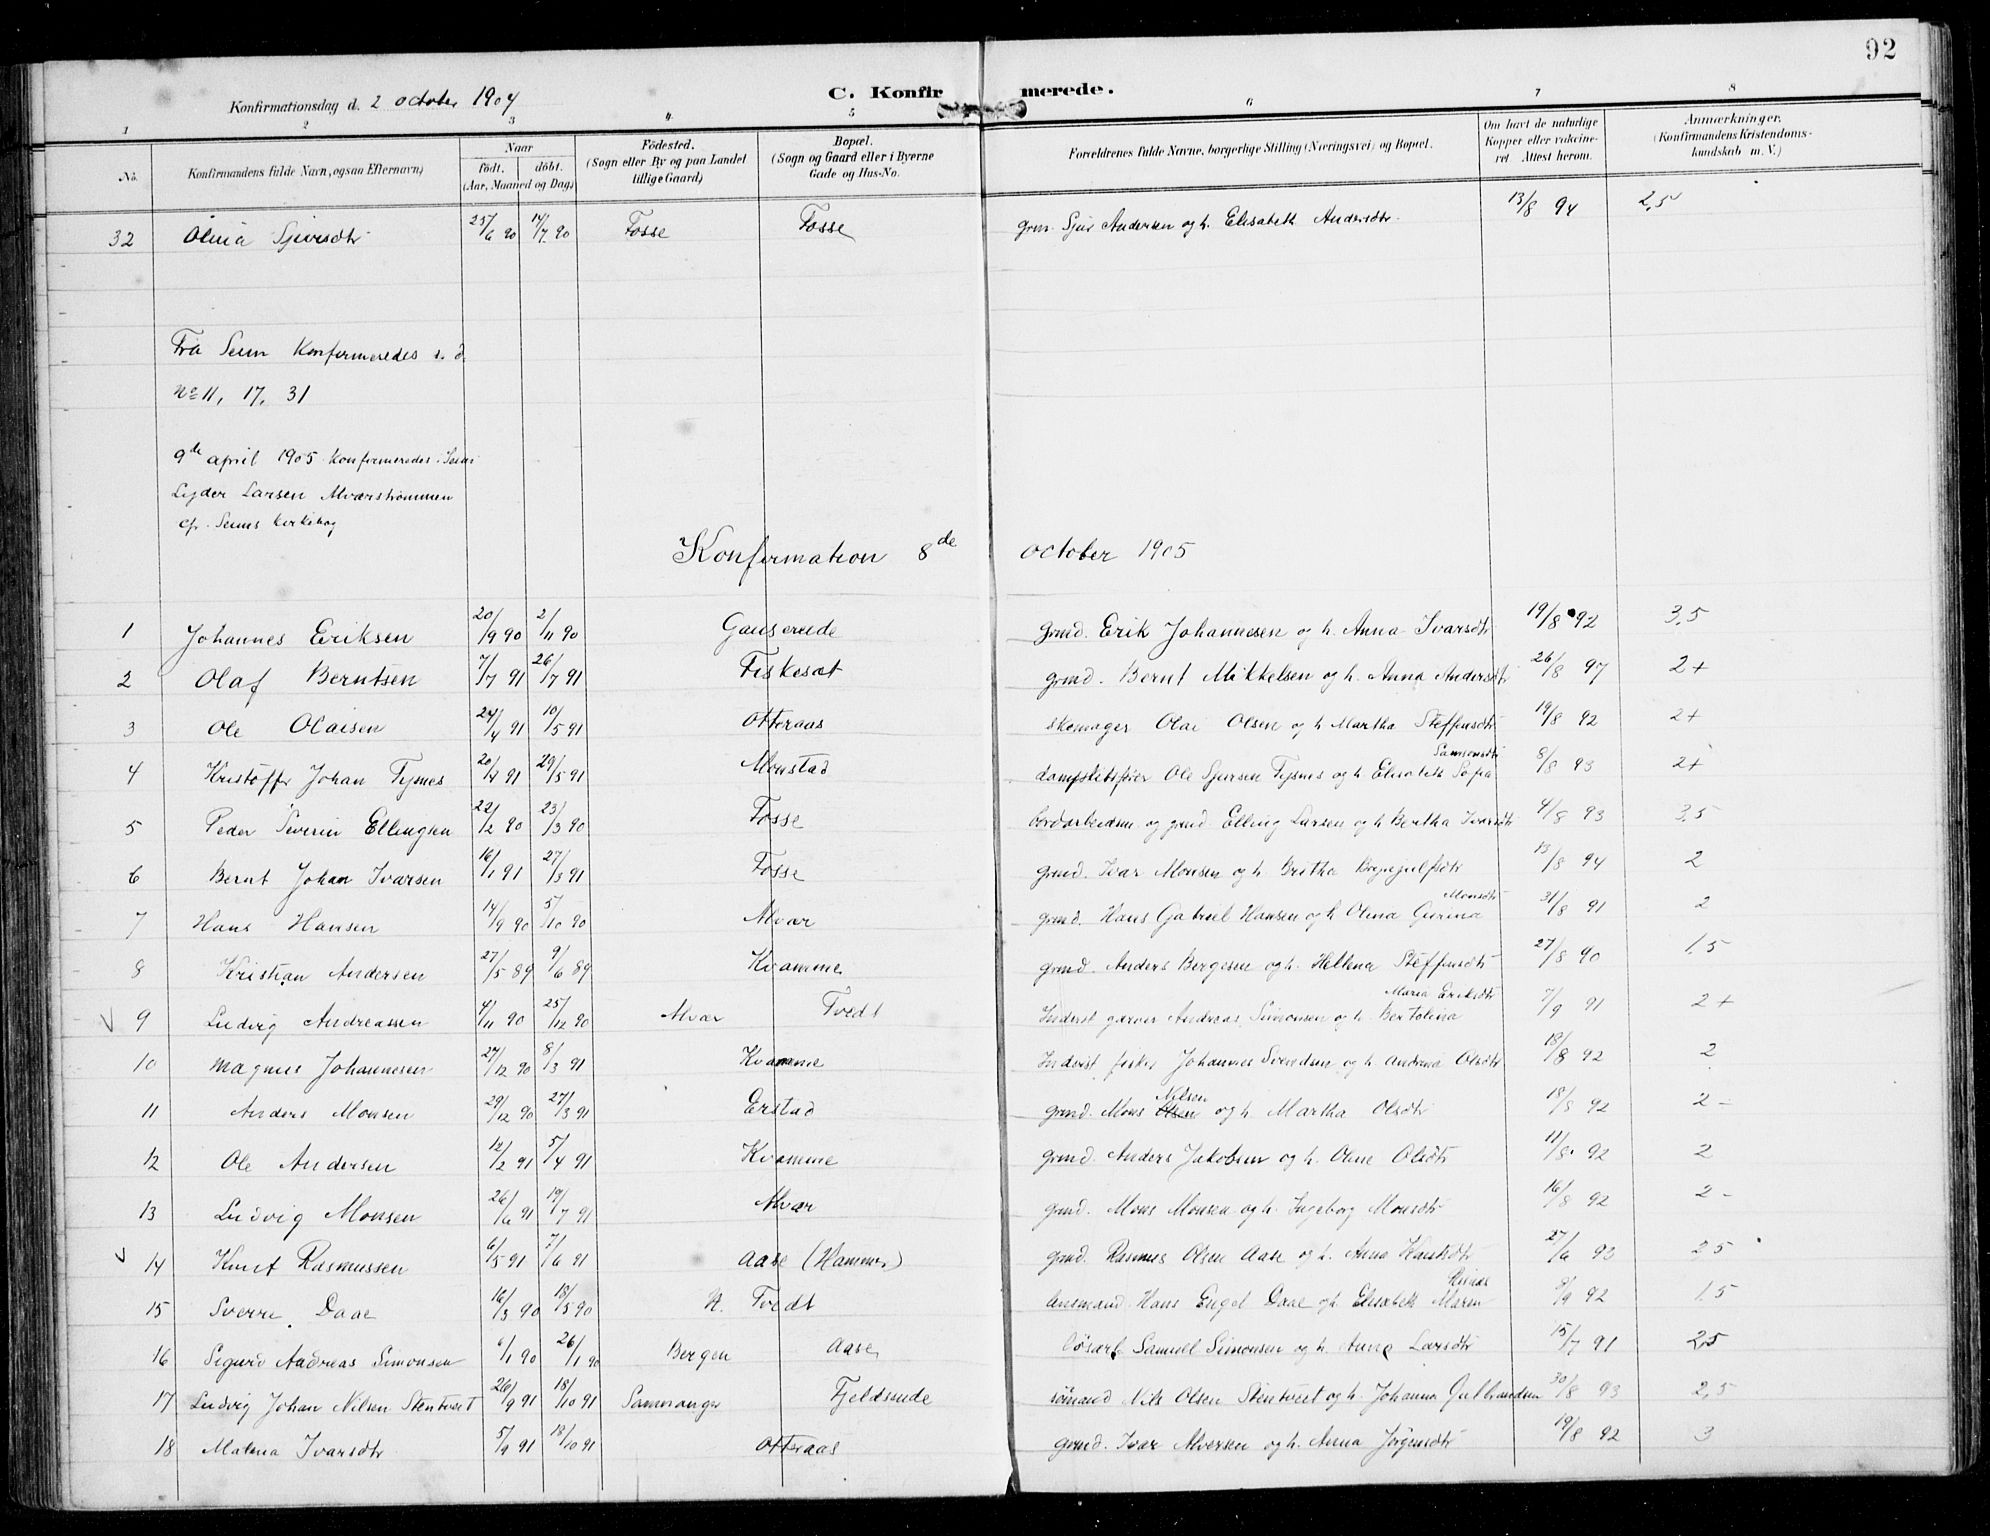 92
Konfirmationsdag d. 2 october 1904 C. Konfirmerede.
1 2 3 4 5 6 7 8
No. Konfirmandens fulde Navn, ogsaa Efternavn) Naar födt. döbt. (Aar, Maaned og Dag) Födested. (Sogn eller By og paa Landet tillige Gaard) Bopæl. (Sogn og Gaard eller i Byerne Gade og Hus-No. Forældrenes fulde Navne, borgerlige Stilling (Næringsvei) og Bopæl. Om havt de naturlige Kopper eller vakcineret. Attest herom. Anmærkninger. (Konfirmandens Kristendomskundskab m. V.)
32 Olina Sjursdtr 25/6 90 14/7 90 Fosse Fosse grm. Sjur Andersen og h. Elisabeth Andersdtr 13/8 94 2,5
Fra Seim Konfirmeredes s. d.
No 11, 17, 31
9de april 1905 Konfirmeredes i Seim
Lyder Larsen Alværstrømmen
cfr. Seims kirkebog
Konfirmation 8de october 1905
1 Johannes Eriksen 20/9 90 2/11 90 grmd. Erik Johannesen og h. Anna Ivarsdtr 19/8 92 3,5
2 Olaf Berntsen 7/7 91 26/7 91 Fiskesæt grmd. Bernt Mikkelsen og h. Anna Andersdtr 26/8 97 2+
3 Ole Olaisen 24/4 91 10/5 91 Otteraas skomager Olai Olsen og h Martha Steffensdtr 19/8 92 2+
4 Kristoffer Johan Tysnes 20/4 91 29/5 91 Monstad dampskibsfører Ole Sjursen Tysnes og h Elisabeth Sofia Samsonsdtr 8/8 93 2+
5 Peder Severin Ellingsen 22/2 90 23/3 90 Fosse og grmd. Elling Larsen og h Bertha Ivarsdtr 4/8 93 3,5
6 Bernt Johan Ivarsen 16/1 91 27/3 91 Fosse grmd. Ivar Monsen og h. Britha Brynjulfsdtr 13/8 94 2
7 Hans Hansen 14/9 90 5/10 90 Alvær grmd. Hans Gabriel Hansen og h Olina Gurina Monsdtr 31/8 91 2
8 Kristian Andersen 27/5 89 9/6 89 Kvamme grmd. Anders Bergesen og h. Hellena Steffensdtr 27/8 90 1,5
9 Ludvig Andreassen 4/11 90 25/12 90 Alvær Tvedt Inderst garver Andreas Simonsen og h Bertolina Maria Eriksdtr 7/9 91 2+
10 Magnus Johannesen 27/12 90 8/3 91 Kvamme Inderst fisker Johannes Svendsen og h. Andrina Olsdtr 18/8 92 2
11 Anders Monsen 29/12 90 27/3 91 Erstad grmd. Mons Olsen Nilsen og h Martha Olsdtr 18/8 92 2-
12 Ole Andersen 12/2 91 5/4 91 Kvamme grmd. Anders Jakobsen og h. Oline Olsdtr 11/8 92 2
13 Ludvig Monsen 26/6 91 19/7 91 Alvær grmd. Mons Monsen og h. Ingeborg Monsdtr 16/8 92 2-
14 Knut Rasmussen 6/5 91 7/6 91 Aase (Hammer) grmd. Rasmus Olsen Aase og h. Anna 27/6 93 2,5
15 Sverre Daae 16/3 90 18/5 90 N. Tvedt lensmand Hans Engel Daae og h. Elisabeth Maren 8/9 92 1,5
16 Sigurd Andreas Simonsen 6/1 90 26/1 90 Bergen Aase løsarb. Samuel Simonsen og h. Anna Larsdtr 15/7 91 2,5
17 Ludvig Johan Nilsen Stentveet 26/9 91 18/10 91 Samnanger Fjeldssende sømand Nils Olsen Stentveet og h. Johanna Gulbrandsen 30/8 93 2,5
18 Malena Ivarsdtr 5/9 91 18/10 91 Otteraas grmd. Ivar Alversen og h. Anna Jørgensdtr 19/8 92 3